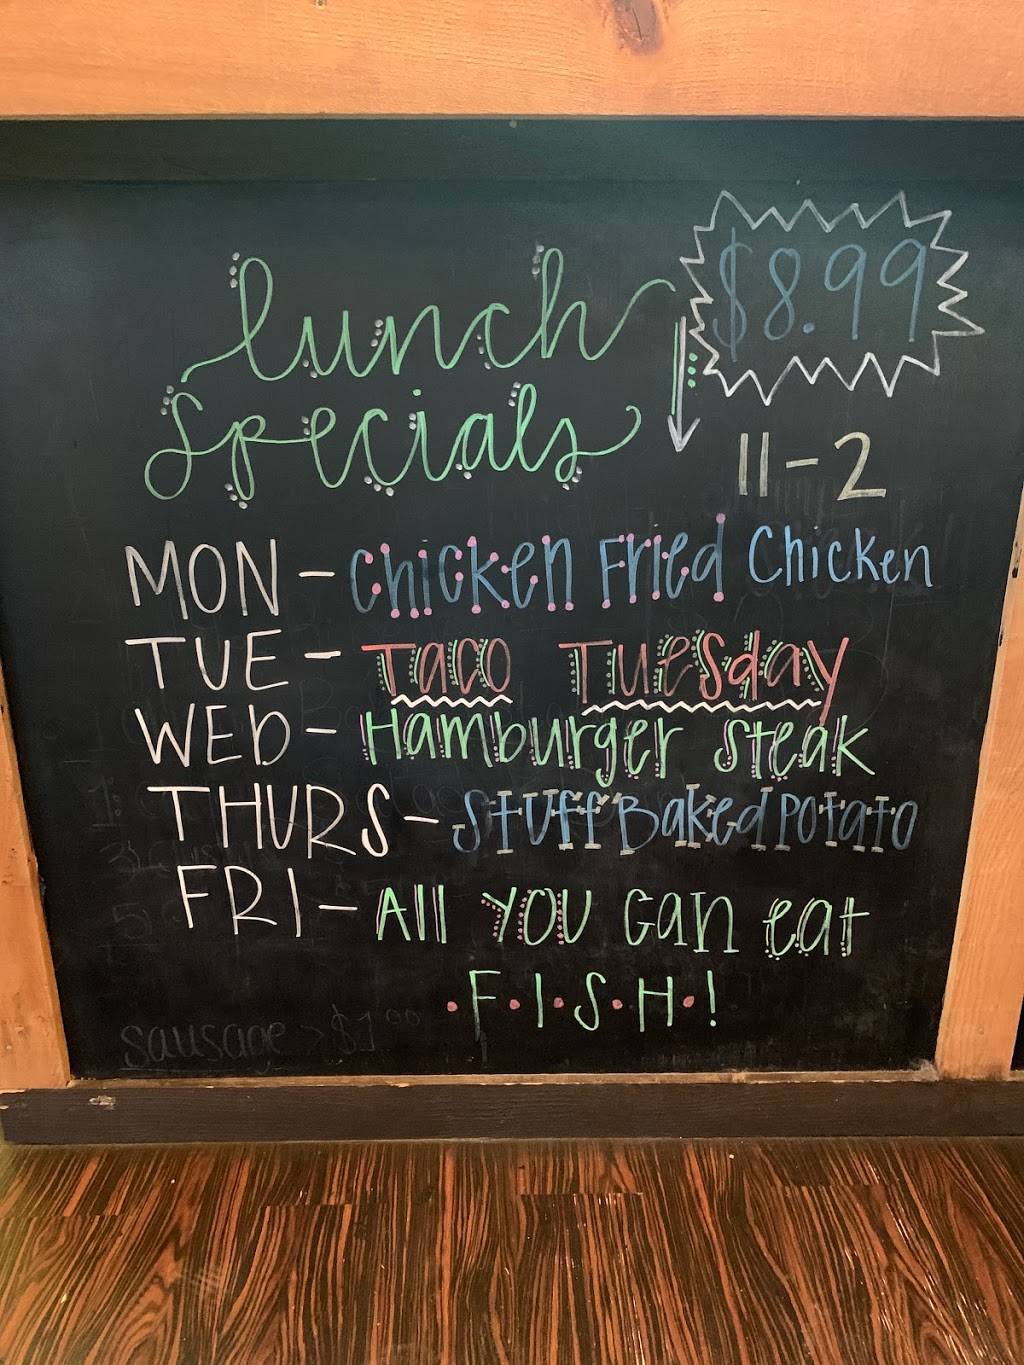 lunch
$8.99
Specials
11-2
MON - Chicken Fried Chicken
TUE - Taco Tuesday
WED - Hamburger Steak
THURS - Stuff Baked Potato
FRI - All YOU Can eat
F·I·S·H·!
sausage > $1.00